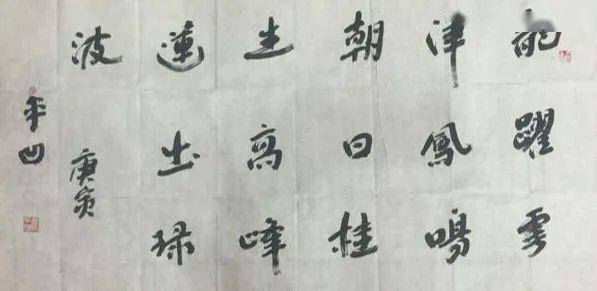 龍躍雲
津鳳鳴
朝日桂
生高峰
蓮出绿
波
庚寅
平凹